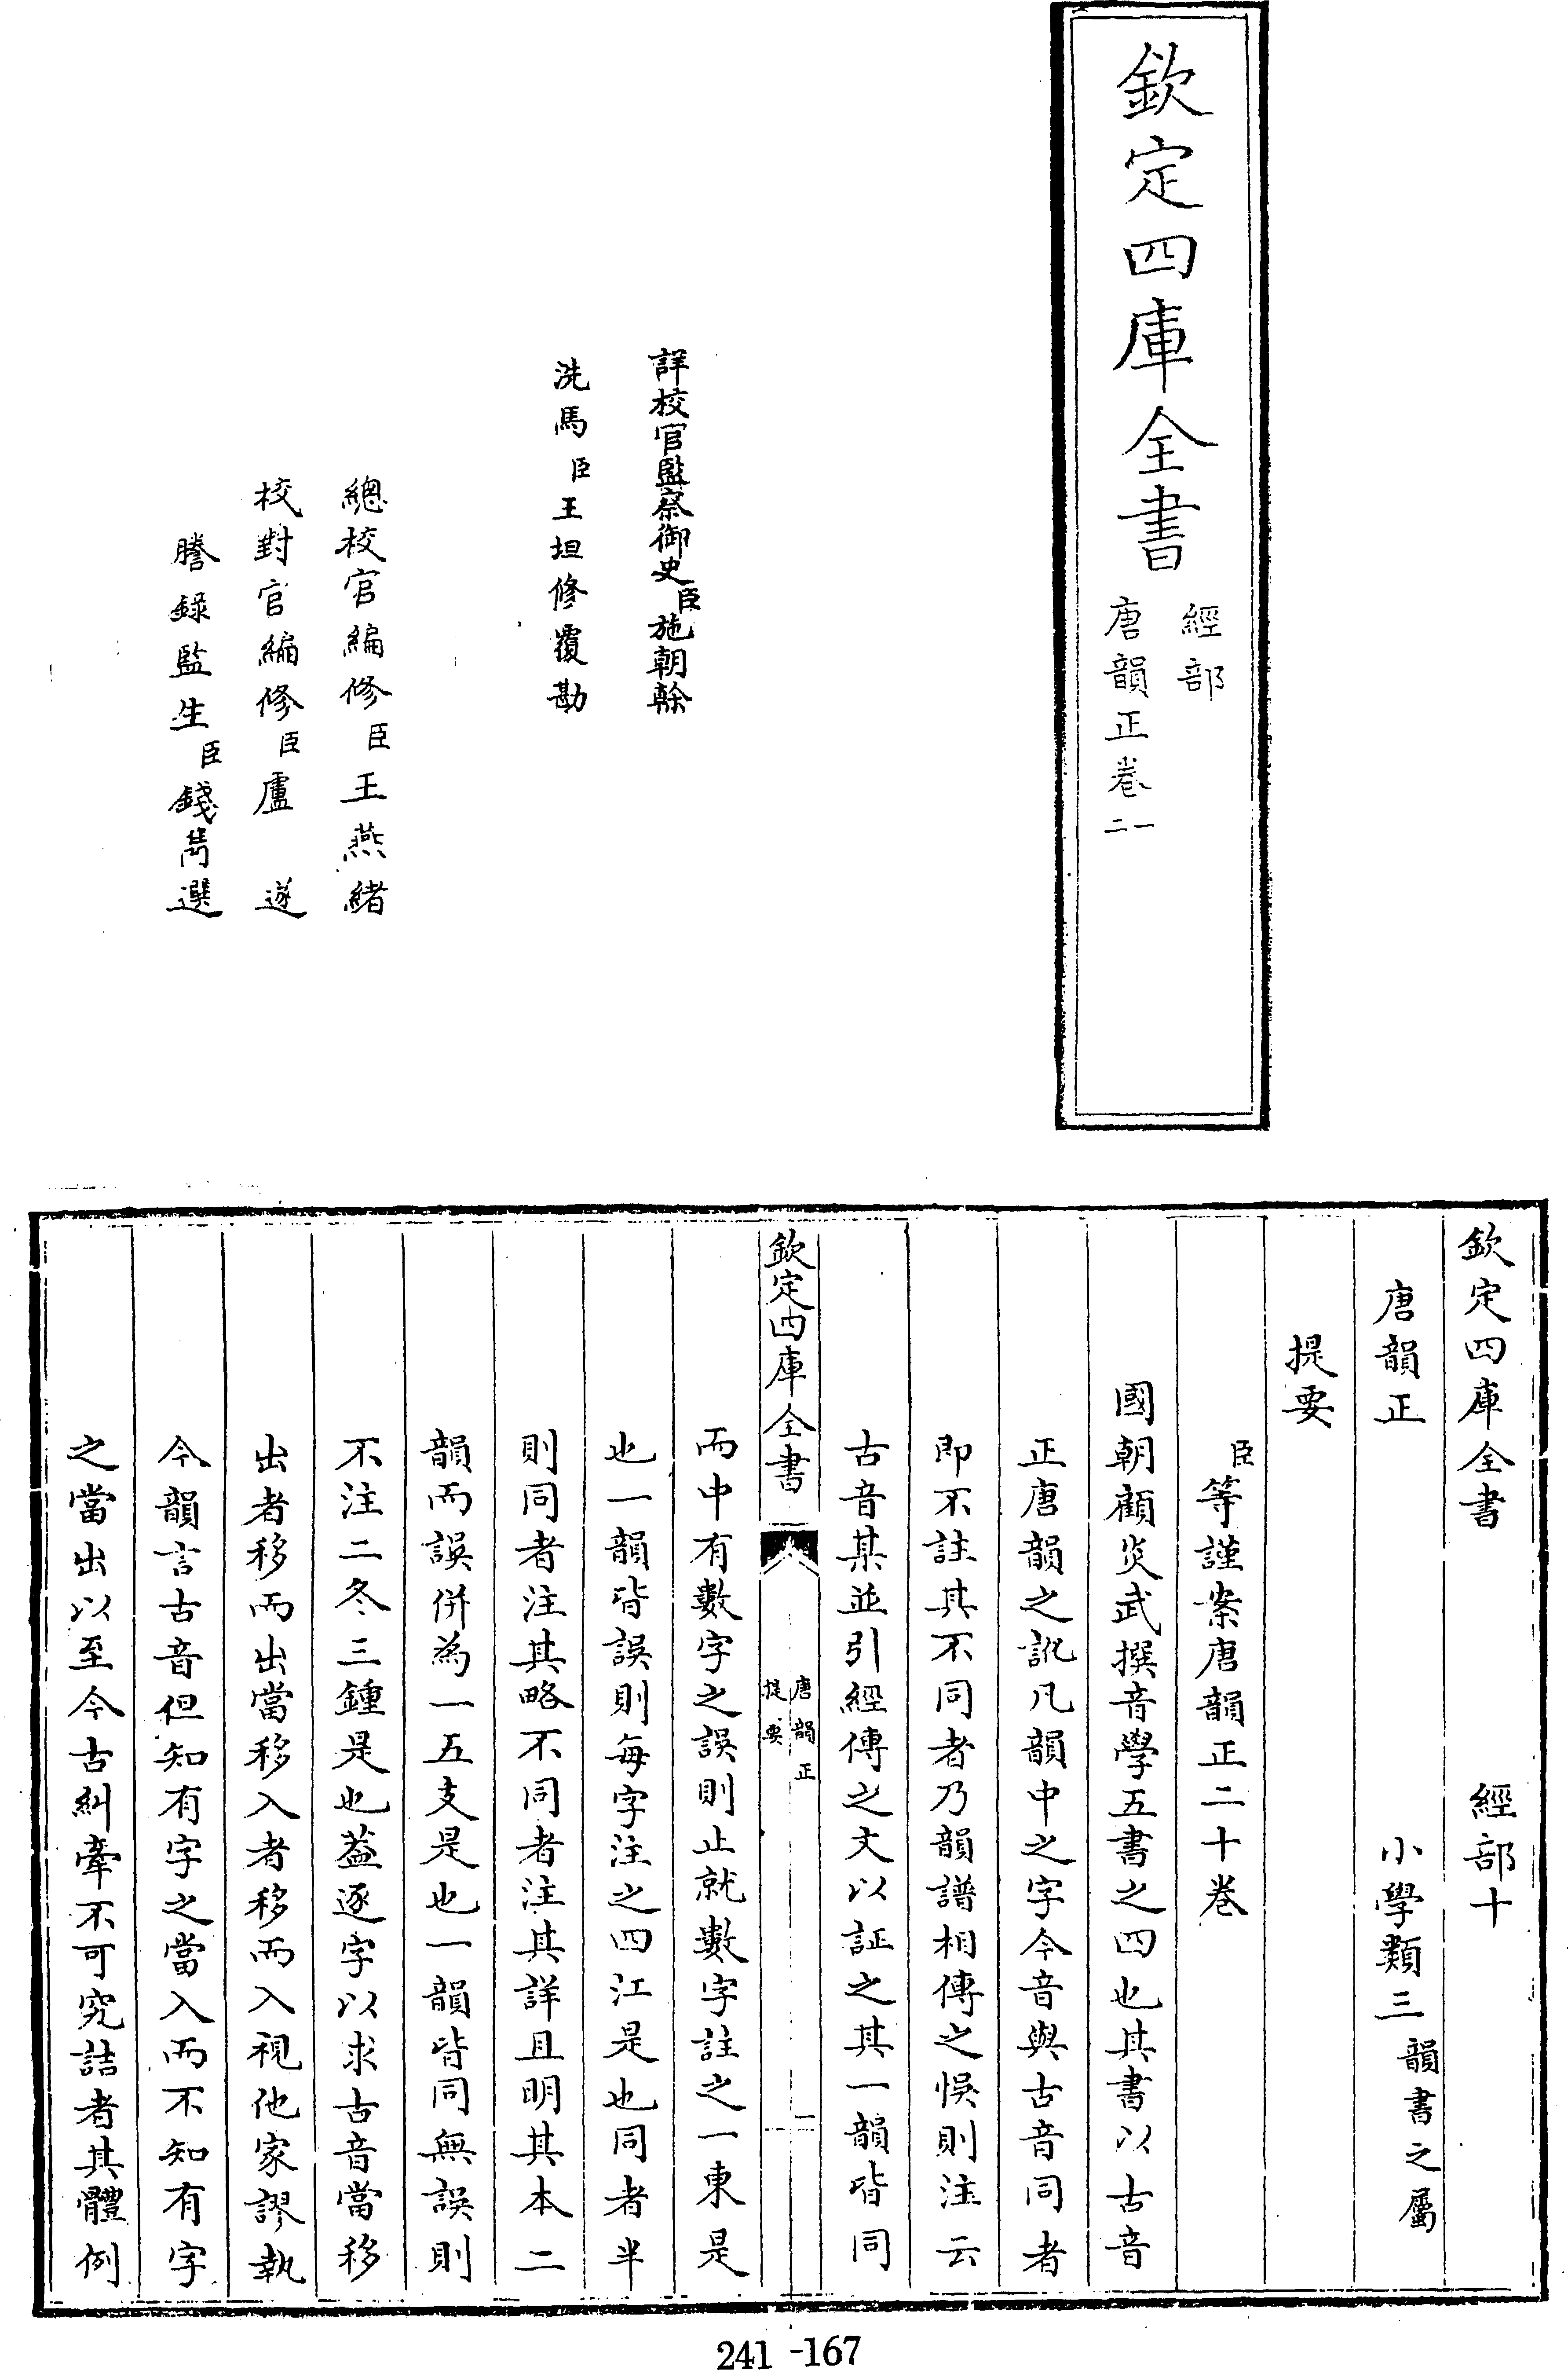 欽定四庫全書
經部
唐韻正卷一
二
詳校官監察御史臣施朝榦
洗馬臣王坦修覆勘
總校官編修臣王燕緒
校對官編修臣盧遂
謄錄監生臣錢雋選
欽定四庫全書 經部十
唐韻正 小學類三韻書之屬
提要
臣等謹案唐韻正二十卷
國朝顧炎武撰音學五書之四也其書以古音
正唐韻之訛凡韻中之字今音與古音同者
即不註其不同者乃韻譜相傳之悞則注云
古音某並引經傳之文以証之其一韻皆同
欽定四庫全書
唐韻正
提要
一
而中有數字之誤則止就數字註之一東是
也一韻皆誤則每字注之四江是也同者半
則同者注其略不同者注其詳且明其本二
韻而誤併為一五支是也一韻皆同無誤則
不注二冬三鍾是也葢逐字以求古音當移
出者移而出當移入者移而入視他家謬執
今韻言古音但知有字之當入而不知有字
之當出以至今古糾牽不可究詰者其體例
241-167